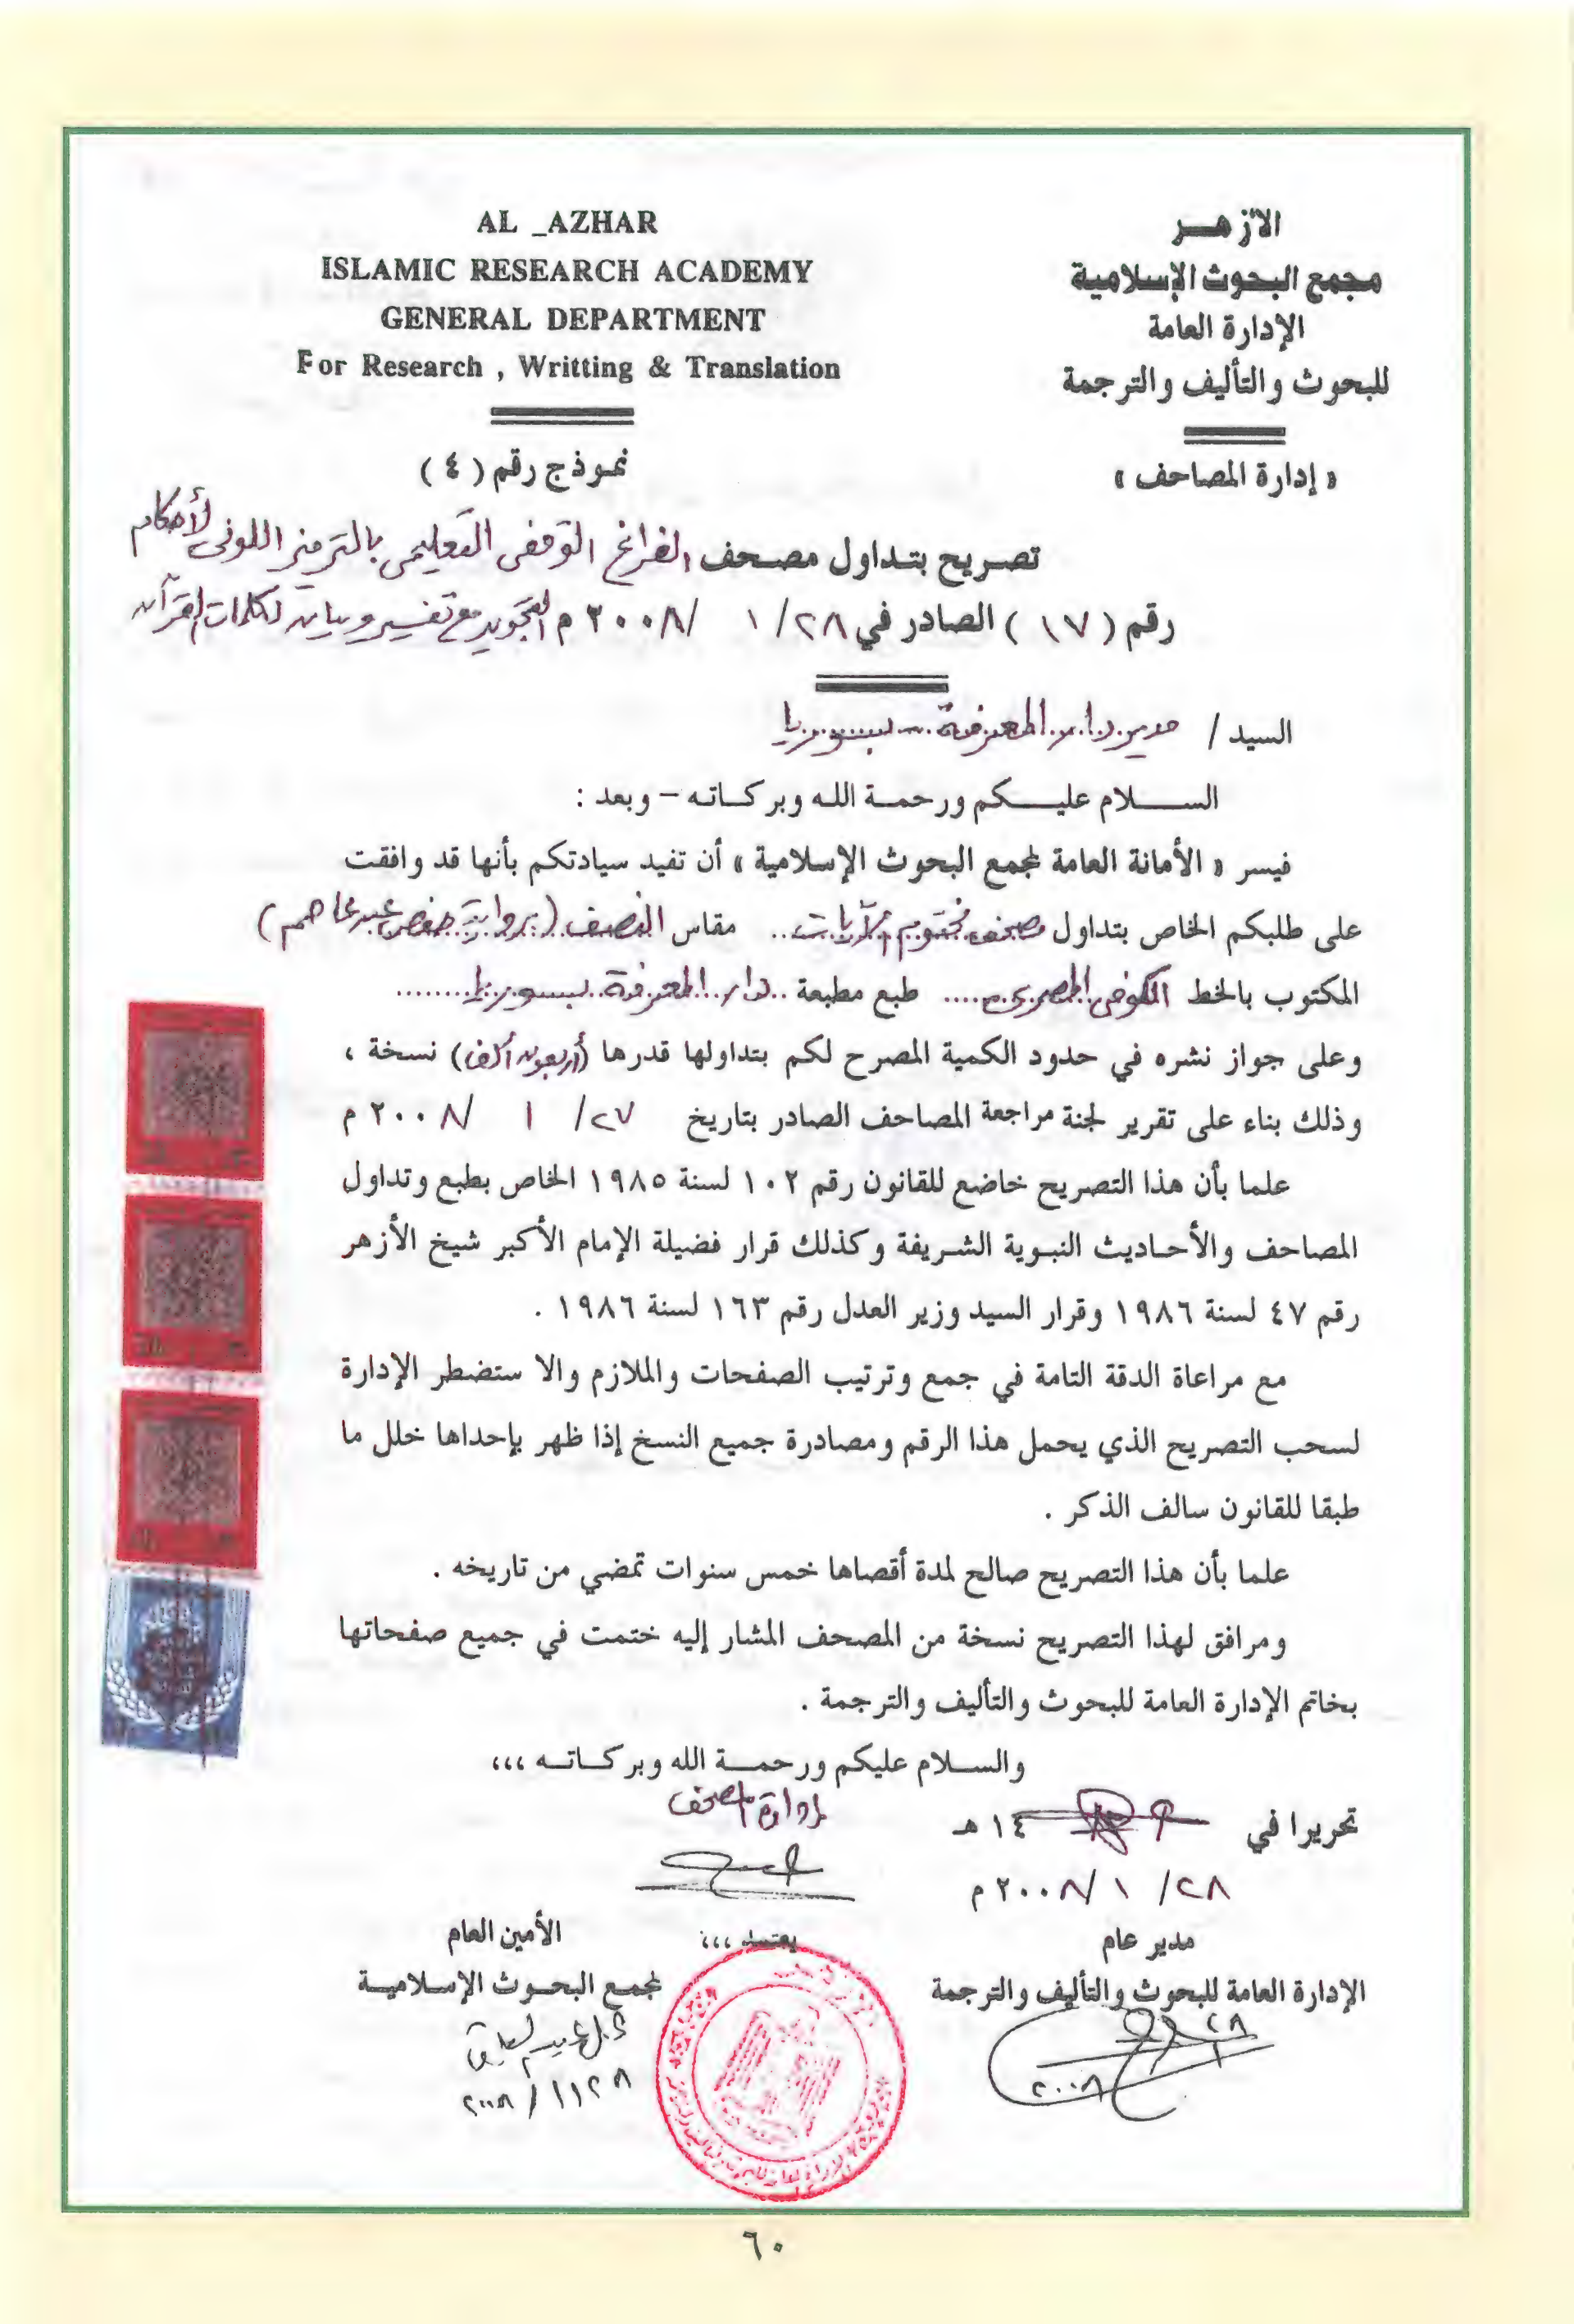 AL _AZHAR
ISLAMIC RESEARCH ACADEMY
GENERAL DEPARTMENT
For Research , Writting & Translation
الأزهر
مجمع البحوث الإسلامية
الإدارة العامة
للبحوث والتأليف والترجمة
« إدارة المصاحف »
نموذج رقم ( ٤ )
تصريح بتداول مصحف الفراغ الوقفي التعليمي بالترميز اللوني لأحكام
رقم ( ١٧ ) الصادر في ٢٨ / ١ / ٢٠٠٨ م التجويد مع تفسير وبيان لكلمات القرآن
السيد / مدير دار المعرفة - بسوريا
السلام عليكم ورحمة الله وبركاته – وبعد :
فيسر « الأمانة العامة لمجمع البحوث الإسلامية » أن تفيد سيادتكم بأنها قد وافقت
على طلبكم الخاص بتداول مصحف مختوم الآيات .. مقاس النصف ( برواية حفص عن عاصم )
المكتوب بالخط الكوفي المصري .... طبع مطبعة .. دار المعرفة بسوريا ........
وعلى جواز نشره في حدود الكمية المصرح لكم بتداولها قدرها (أربعون ألف) نسخة ،
وذلك بناء على تقرير لجنة مراجعة المصاحف الصادر بتاريخ ٢٧ / ١ / ٢٠٠٨ م
علما بأن هذا التصريح خاضع للقانون رقم ١٠٢ لسنة ١٩٨٥ الخاص بطبع وتداول
المصاحف والأحاديث النبوية الشريفة وكذلك قرار فضيلة الإمام الأكبر شيخ الأزهر
رقم ٤٧ لسنة ١٩٨٦ وقرار السيد وزير العدل رقم ١٦٣ لسنة ١٩٨٦ .
مع مراعاة الدقة التامة في جمع وترتيب الصفحات والملازم والا ستضطر الإدارة
لسحب التصريح الذي يحمل هذا الرقم ومصادرة جميع النسخ إذا ظهر بإحداها خلل ما
طبقا للقانون سالف الذكر .
علما بأن هذا التصريح صالح لمدة أقصاها خمس سنوات تمضي من تاريخه .
ومرافق لهذا التصريح نسخة من المصحف المشار إليه ختمت في جميع صفحاتها
بخاتم الإدارة العامة للبحوث والتأليف والترجمة .
والسلام عليكم ورحمة الله وبركاته ،،،
إدارة المصحف
تحريرا في ١٤ هـ
٢٨ / ١ / ٢٠٠٨ م
مدير عام
الإدارة العامة للبحوث والتأليف والترجمة
٢٨
١
٢٠٠٨
يعتمد ،،،
الأمين العام
لمجمع البحوث الإسلامية
٢٨ / ١ / ٢٠٠٨
٦٠